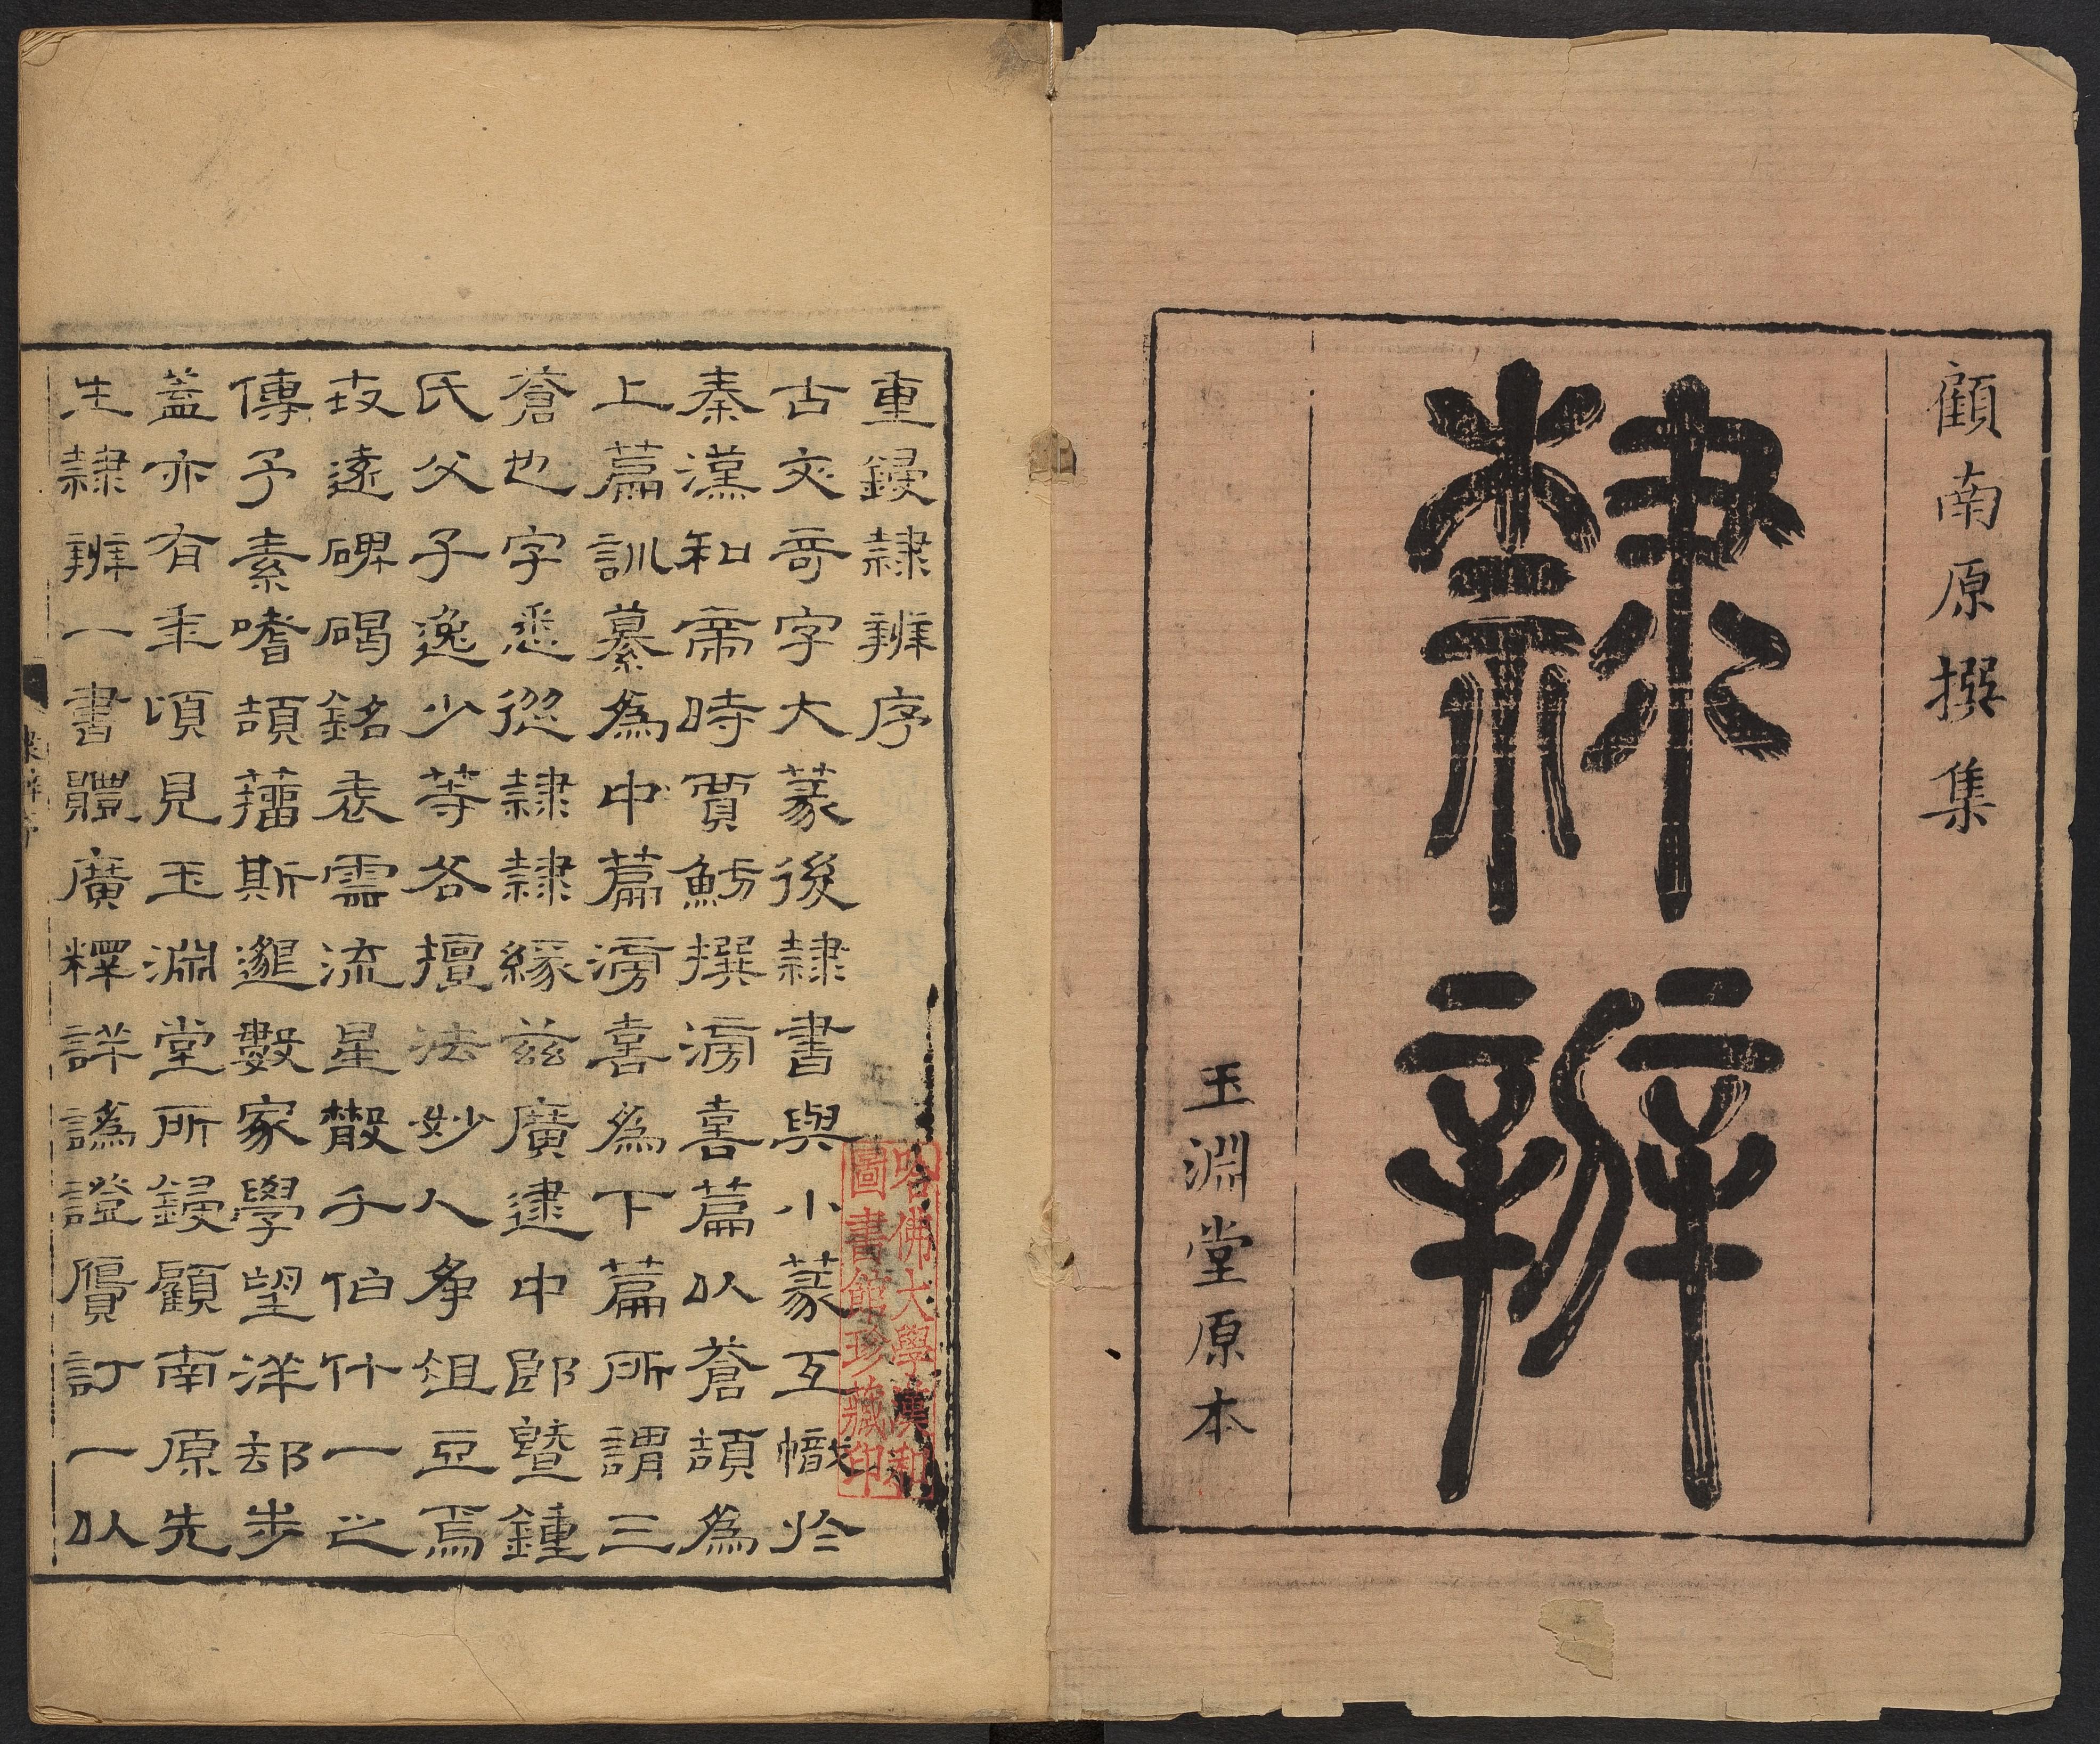 顧南原撰集
隸辨
玉淵堂原本
重鋟隸辨序
古文奇字大篆後隸書與小篆互幟於
秦漢和帝時賈魴撰滂喜篇以蒼頡為
上篇訓纂為中篇滂喜為下篇所謂三
蒼也字悉從隸隸緣茲廣逮中郎暨鍾
氏父子逸少等各擅法妙人爭俎豆焉
攷遠碑碣銘表雲流星散千伯什一之
傳予素嗜頡籒斯邈數家學望洋却步
蓋亦有年頃見玉淵堂所鋟顧南原先
生隸辨一書體廣釋詳譌證贗訂一以
哈佛大學漢和
圖書館珍藏印
隸辨序